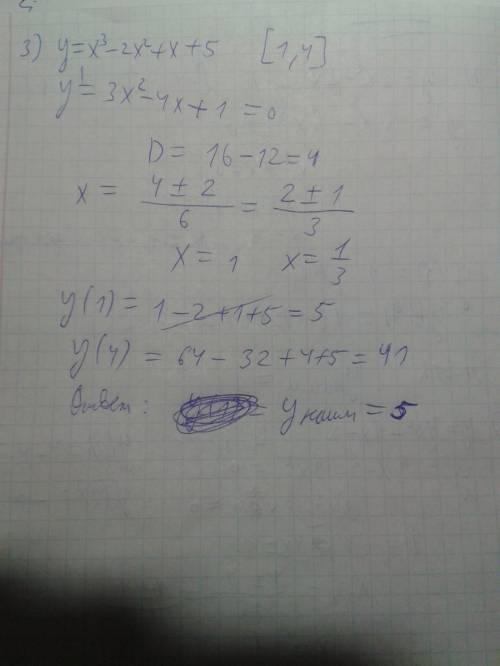 3) y=x³-2x²+x+5 [1,4]
y'=3x²-4x+1=0
D= 16-12=4
x= (4±2)/6 = (2±1)/3
x=1 x=1/3
y(1)= 1-2+1+5=5
y(4)= 64-32+4+5=41
Ответ: y наим = 5